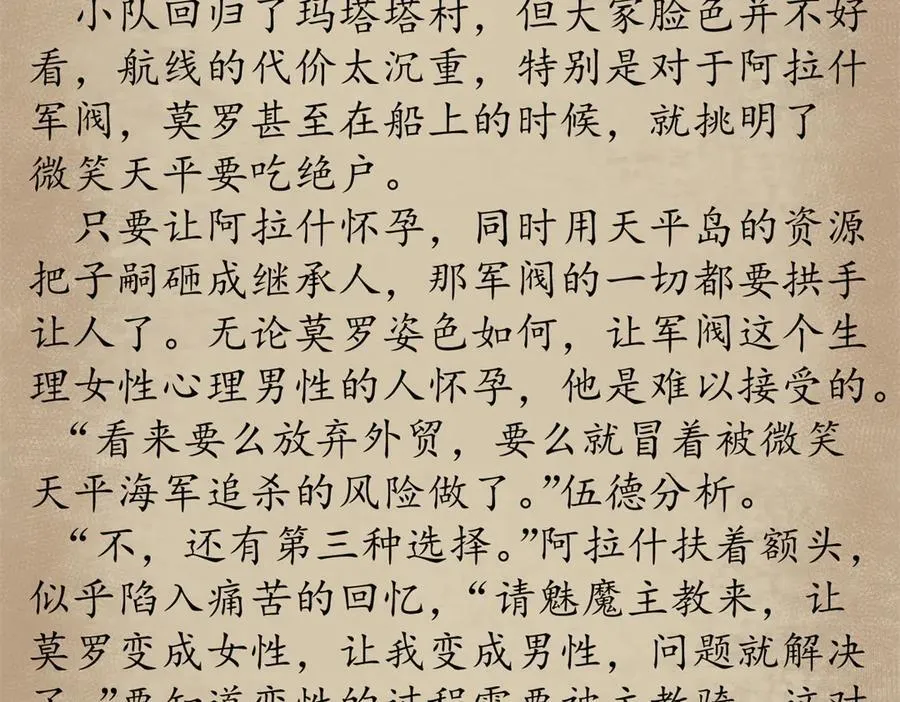 小队回归了玛塔塔村，但大家脸色并不好
看，航线的代价太沉重，特别是对于阿拉什
军阀，莫罗甚至在船上的时候，就挑明了
微笑天平要吃绝户。
只要让阿拉什怀孕，同时用天平岛的资源
把子嗣砸成继承人，那军阀的一切都要拱手
让人了。无论莫罗姿色如何，让军阀这个生
理女性心理男性的人怀孕，他是难以接受的。
“看来要么放弃外贸，要么就冒着被微笑
天平海军追杀的风险做了。”伍德分析。
“不，还有第三种选择。”阿拉什扶着额头，
似乎陷入痛苦的回忆，“请魅魔主教来，让
莫罗变成女性，让我变成男性，问题就解决
了。”要知道变性的过程需要被主教骑，这对